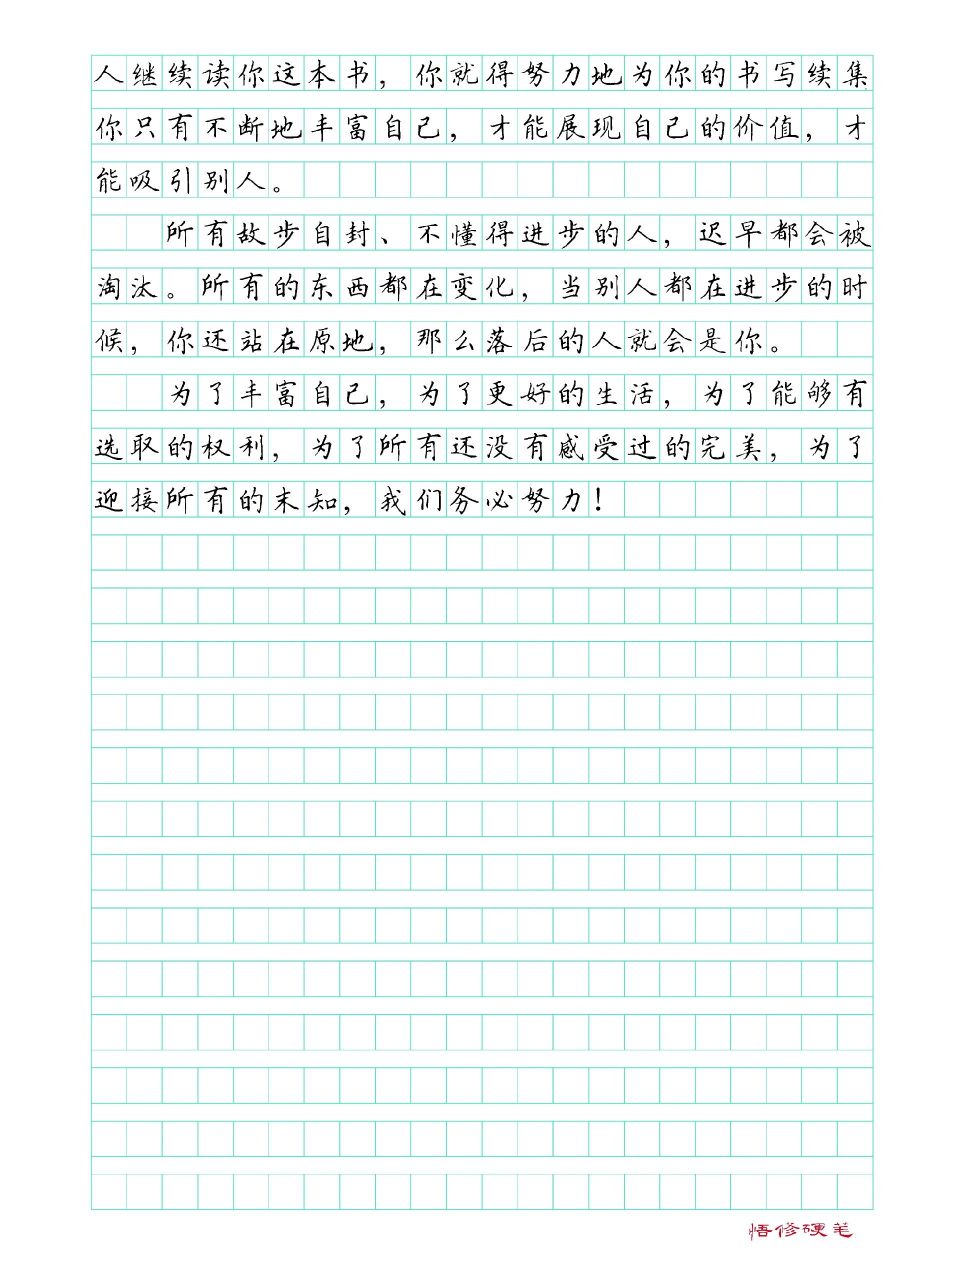 人继续读你这本书，你就得努力地为你的书写续集
你只有不断地丰富自己，才能展现自己的价值，才
能吸引别人。
所有故步自封、不懂得进步的人，迟早都会被
淘汰。所有的东西都在变化，当别人都在进步的时
候，你还站在原地，那么落后的人就会是你。
为了丰富自己，为了更好的生活，为了能够有
选取的权利，为了所有还没有感受过的完美，为了
迎接所有的未知，我们务必努力！
悟修硬笔